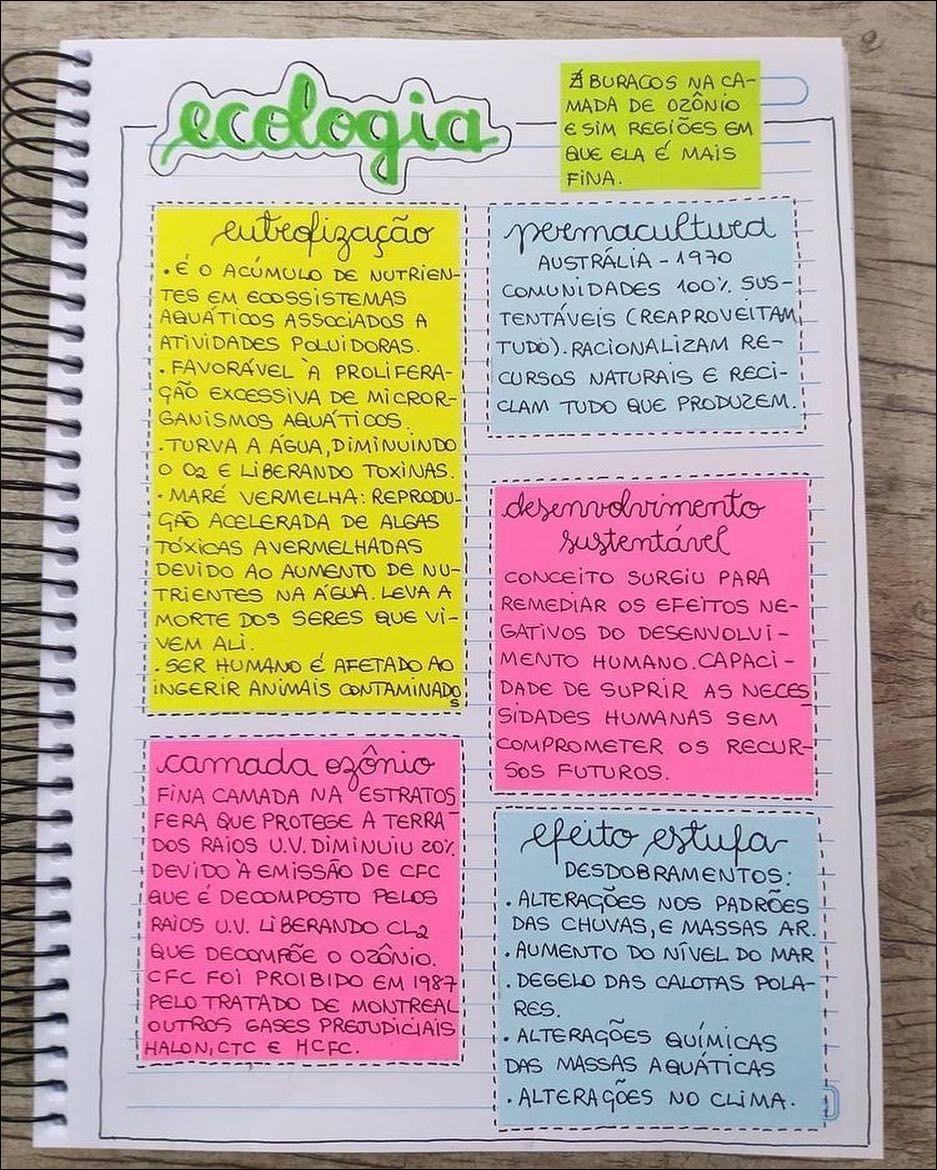 ecologia
∄ BURACOS NA CA-
MADA DE OZÔNIO
E SIM REGIÕES EM
QUE ELA É MAIS
FINA.
eutrofização
• É O ACÚMULO DE NUTRIEN-
TES EM ECOSSISTEMAS
AQUÁTICOS ASSOCIADOS A
ATIVIDADES POLUIDORAS.
• FAVORÁVEL À PROLIFERA-
ÇÃO EXCESSIVA DE MICROR-
GANISMOS AQUÁTICOS.
• TURVA A ÁGUA, DIMINUINDO
O O2 E LIBERANDO TOXINAS.
• MARÉ VERMELHA: REPRODU-
ÇÃO ACELERADA DE ALGAS
TÓXICAS AVERMELHADAS
DEVIDO AO AUMENTO DE NU-
TRIENTES NA ÁGUA. LEVA A
MORTE DOS SERES QUE VI-
VEM ALI.
• SER HUMANO É AFETADO AO
INGERIR ANIMAIS CONTAMINADOS
camada ozônio
FINA CAMADA NA ESTRATOS
FERA QUE PROTEGE A TERRA
DOS RAIOS U.V. DIMINUIU 20%
DEVIDO À EMISSÃO DE CFC
QUE É DECOMPOSTO PELOS
RAIOS U.V. LIBERANDO CL2
QUE DECOMPÕE O OZÔNIO.
CFC FOI PROIBIDO EM 1987
PELO TRATADO DE MONTREAL
OUTROS GASES PREJUDICIAIS
HALON, CTC E HCFC.
permacultura
AUSTRÁLIA - 1970
COMUNIDADES 100% SUS-
TENTÁVEIS (REAPROVEITAM
TUDO). RACIONALIZAM RE-
CURSOS NATURAIS E RECI-
CLAM TUDO QUE PRODUZEM.
desenvolvimento
sustentável
CONCEITO SURGIU PARA
REMEDIAR OS EFEITOS NE-
GATIVOS DO DESENVOLVI-
MENTO HUMANO. CAPACI-
DADE DE SUPRIR AS NECES
SIDADES HUMANAS SEM
COMPROMETER OS RECUR-
SOS FUTUROS.
efeito estufa
DESDOBRAMENTOS:
• ALTERAÇÕES NOS PADRÕES
DAS CHUVAS, E MASSAS AR.
• AUMENTO DO NÍVEL DO MAR
• DEGELO DAS CALOTAS POLA-
RES.
• ALTERAÇÕES QUÍMICAS
DAS MASSAS AQUÁTICAS
• ALTERAÇÕES NO CLIMA.